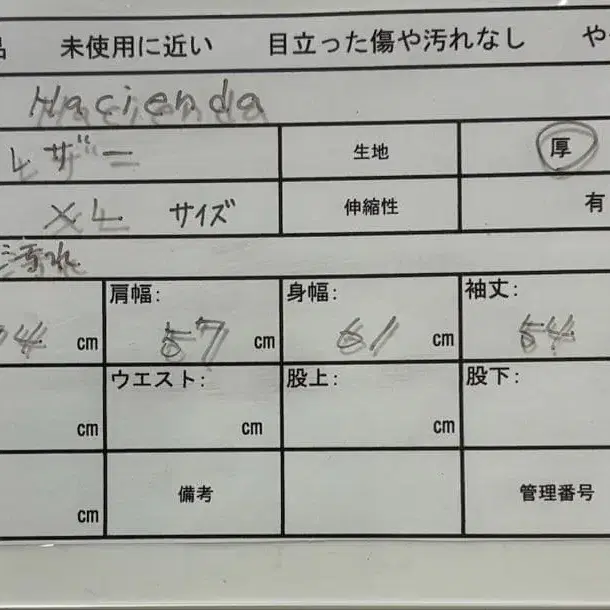 品 未使用に近い 目立った傷や汚れなし や
Hacienda
レザー 生地 厚
XL サイズ 伸縮性 有
汚れ
肩幅: 身幅: 袖丈:
4 cm 57 cm 61 cm 54
ウエスト: 股上: 股下:
cm cm cm
cm 備考 管理番号